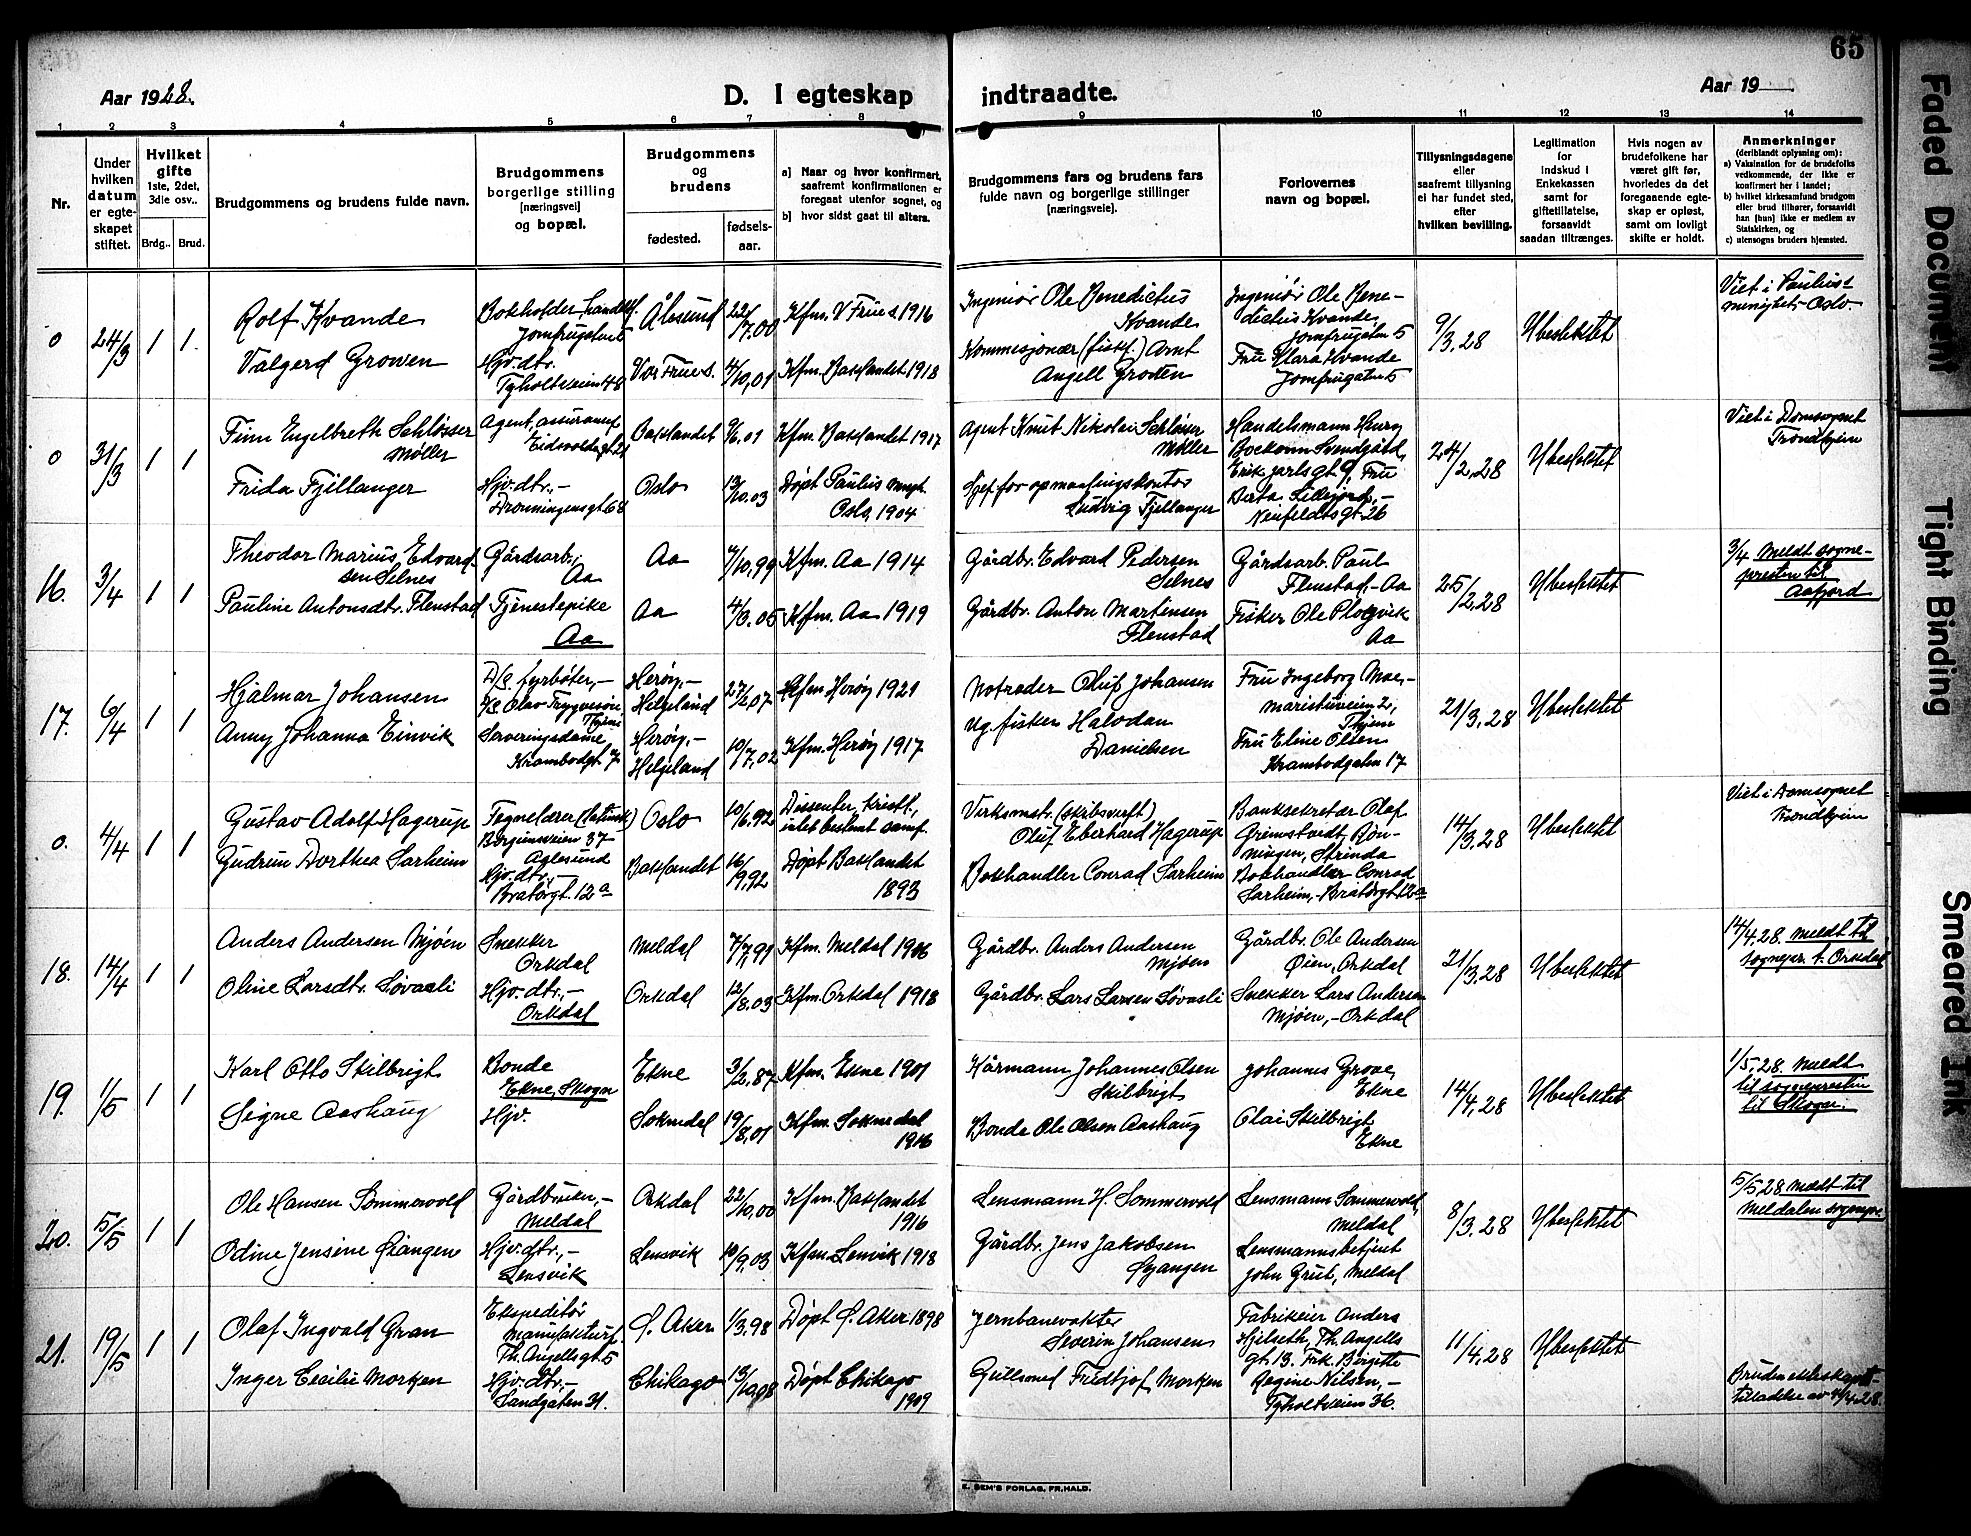 65
Aar 1928.
D. I egteskap indtraadte.
Aar 19
1 2 3 4 5 6 7 8 9 10 11 12 13 14
Nr.
Under hvilken datum er egte-skapet stiftet.
Hvilket gifte
1ste, 2det, 3die osv..
Brdg.. Brud.
Brudgommens og brudens fulde navn.
Brudgommens borgerlige stilling (næringsvei) og bopæl.
Brudgommens og brudens
fødested.
fødsels-aar.
a) Naar og hvor konfirmert, saafremt konfirmationen er foregaat utenfor sognet, og
b) hvor sidst gaat til alters.
Brudgommens fars og brudens fars fulde navn og borgerlige stillinger (næringsveie).
Forlovernes navn og bopæl.
Tillysningsdagene eller saafremt tillysning ei har fundet sted, efter hvilken bevilling.
Legitimation for indskud i Enkekassen samt for giftetillatelse, forsaavidt saadan tiltrænges.
Hvis nogen av brudefolkene har været gift før, hvorledes da det foregaaende egte-skap er opløst, samt om lovligt skifte er holdt.
Anmerkninger
(deriblandt oplysning om):
a) Vaksination for de brudefolks vedkommende, der ikke er konfirmert her i landet;
b) hvilket kirkesamfund brudgom eller brud tilhører, forsaavidt han (hun) ikke er medlem av Statskirken, og
c) utensogns bruders hjemsted.
0 24/3 1 1.
Rolf Kvande
Valgerd Growen
Jomfrugaten 5
Hjv.dtr.
Tyholtveien 48
Ålesund 22/7.00 Kfm. V Frue s. 1916
Vor Frue s. 4/10,01 Kfm. Baklandet 1918
Ingeniør Ole Benedictus Kvande
Kommisjonær (fisk.) Arnt Angell Groven
Ingeniør Ole Bene-
dictus Kvande,
Jomfrugaten 5
Fru Klara Kvande
Jomfrugaten 5
9/3.28 Ubeslektet
Viet i Paulus
menighet - Oslo.
0 31/3 1 1
Finn Engelbreth Schløsser
Møller
Frida Fjellanger
Agent, assuranse
Eidsvoldsgt 21
Hjv.dtr.,-
Dronningensgt 68
Baklandet 9/6.01 Kfm. Baklandet 1917
Oslo 13/10.03 Døpt Paulus mngh. Oslo, 1904
Agent Knut Nikolai Schløsser Møller
Sjef for opmaalingskontor Ludvig Fjellanger
Handelsmann Henry
Erik jarlsgt 9, Fru
Neufeldtsgt. 26
24/2,28 Ubeslektet
Viet i Domsognet
Trondhjem
16. 3/4 1 1
Theodor Marius Edvard-
sen Selnes
Pauline Antonsdtr. Flenstad
Gårdsarb.,
Aa
Tjenestepike
Aa
Aa 7/10,99 Kfm. Aa 1914
Aa 4/3.05 Kfm. Aa 1919
Gårdbr. Edvard Pedersen Selnes
Gårdbr. Anton Martinsen Flenstad
Gårdsarb. Paul
Flenstad,- Aa
Fisker Ole
Aa
25/2.28 Ubeslektet
3/4 Meldt sogne-
presten til
Aafjord
17. 6/4 1 1
Hjalmar Johansen
Anny Johanna Einvik
D/s. fyrbøter,-
D/s. Olav Trygvesøn
Thjem
Serveringsdame
Krambodgt 7
Herøy,-
Helgeland 27/2,07 Kfm Herøy 1921
Herøy,-
Helgeland 10/7,02 Kfm. Herøy 1917
Notroder Oluf Johansen
Ug. fisker Halvdan Danielsen
Fru Ingeborg Moe,-
Thjem
Fru Eline Olsen
Krambodgaten 17
21/3.28 Ubeslektet
0. 4/4 1 1
Gustav Adolf Hagerup
Gudrun Dorthea Sarheim
Aalesund
Hjv.dtr.,-
Bratørgt. 12a
Oslo 10/6.92 Dissenter, kristl.,
intet bestemt samf.
Baklandet 16/9,92 Døpt Baklandet 1893
Verksmstr. (skibsverft) Oluf Eberhard Hagerup
Bokhandler Conrad Sarheim
Banksekretær Olaf
Grimstvedt, Røn-
ningen, Strinda
Bokhandler Conrad
Sarheim,- Bratørgt 12a
14/3.28 Ubeslektet
Viet i Domsognet
Trondhjem
18. 14/4 1 1
Anders Andersen Mjøen
Oline Larsdtr. Løvasli
Snekker
Orkdal
Hjv.dtr.,-
Orkdal
Meldal 7/7,99 Kfm. Meldal 1906
Orkdal 12/8.03 Kfm. Orkdal 1918
Gårdbr. Anders Andersen Mjøen
Gårdbr. Lars Larsen Løvasli
Gårdbr. Ole Andersen
Øien, Orkdal
Snekker Lars Andersen
Mjøen,- Orkdal
21/3.28 Ubeslektet
14/4.28. Meldt til
sognepr. t. Orkdal
19. 1/5 1 1
Karl Otto Skilbrigt
Signe Aashaug
Bonde
Ekne, Skogn
Hjv.
Ekne 3/2,87 Kfm. Ekne 1901
Soknedal 19/8,01 Kfm. Soknedal 1916
Kårmann Johannes Olsen Skilbrigt
Bonde Ole Olsen Aashaug
Johannes Grove,
Ekne
Olai Skilbrigt
Ekne
14/4,28 Ubeslektet
1/5.28. Meldt
til sognepresten
til Skogn.
20. 5/5 1 1
Ole Hansen Sommervold
Odine Jensine Siangen
Gårdbruker,-
Meldal
Hjv.dtr.,-
Lensvik
Orkdal 22/10,00 Kfm. Baklandet 1916
Lensvik 10/9,03 Kfm Lensvik 1918
Lensmann H. Sommervold
Gårdbr. Jens Jakobsen Syangen
Lensmann Sommervold,
Meldal
Lensmannsbetjent
John Grut, Meldal
8/3.28 Ubeslektet
5/5.28 Meldt til
Meldalen sognepr.
21. 19/5 1 1
Olaf Ingvald Gran
Inger Cecilie Morken
Ekspeditør
manufakturf.
Th. Angellsgt. 5
Hjv.dtr.,-
Sandgaten 31.
Ø. Aker 1/3,98 Døpt Ø. Aker 1898
Chikago 13/10,08 Døpt Chikago 1909
Jernbanevokter Severin Johansen
Gullsmed Fridtjof Morken
Fabrikeier Anders
Hjelseth, Th. Angells
gt. 13. Frk. Birgitte
Regine Nilsen,-
Tyholtveien 36.
11/4,28 Ubeslektet
Bruden ekteskaps-
tilladelse av 4/4.28.
E. SEM'S FORLAG, FR.HALD.
Faded Document
Tight Binding
Smeared Ink